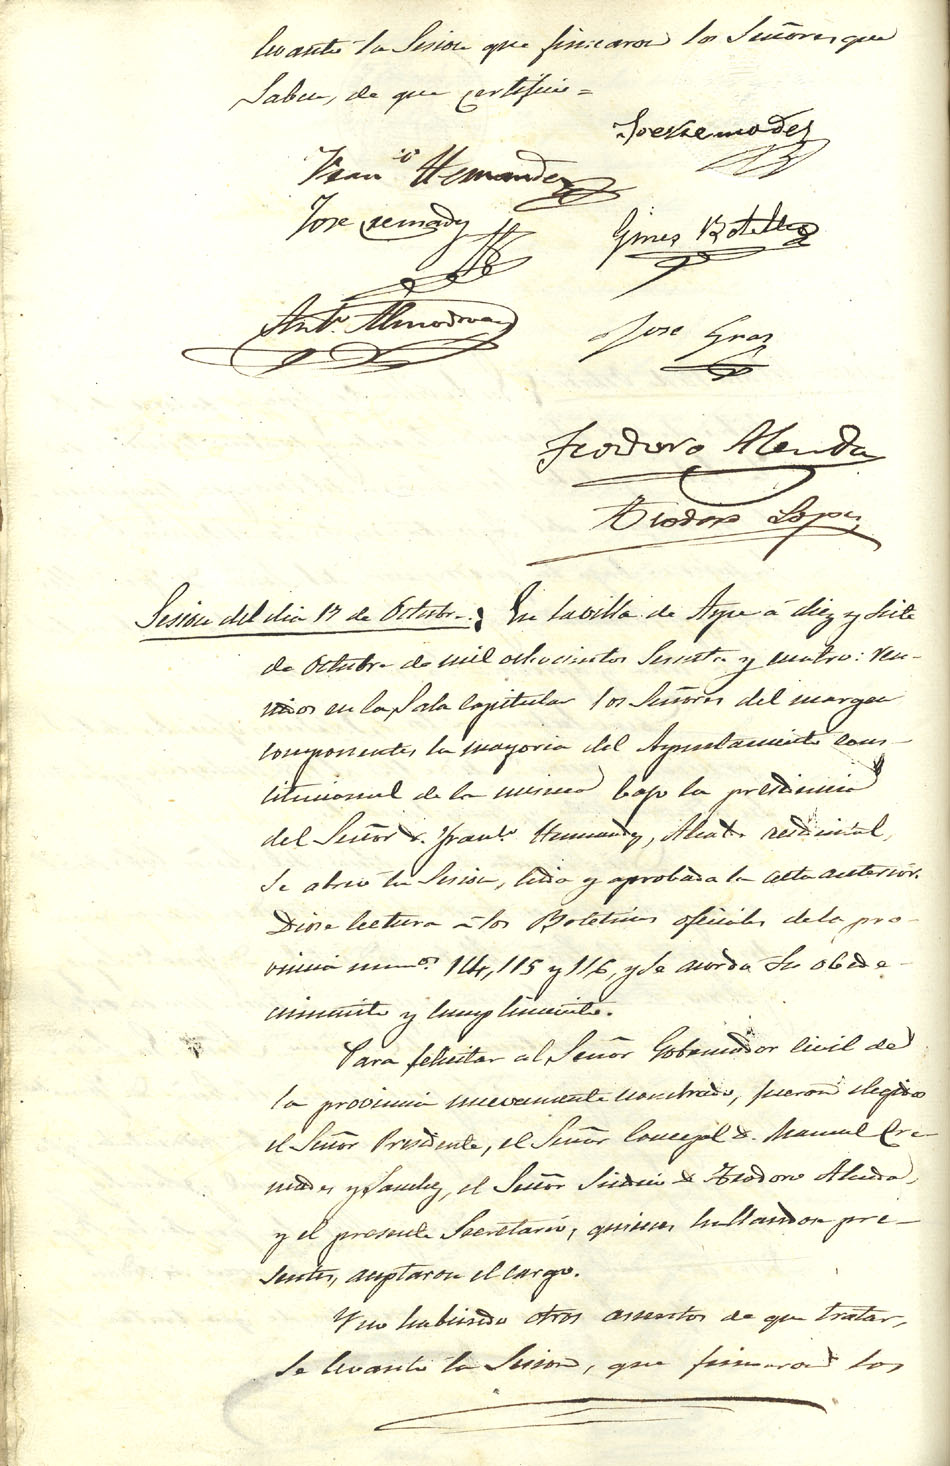 levantó la Sesion que firmaron los Señores que
Saben, de que certifico =
Jose Cremades
Franco Hernandez
Jose Cremades
Gines Botella
Anto Almodovar
Jose Gras
Teodoro Alenda
Teodoro Lopez
Sesion del dia 17 de Octubre. En la villa de Aspe á diez y siete
de Octubre de mil ochocientos Sesenta y cuatro: reu-
nidos en la Sala Capitular los Señores del margen
componentes la mayoria del Ayuntamiento cons-
titucional de la misma bajo la presidencia
del Señor D. Franco Hernandez, Alcalde
se abrio la Sesion, leida y aprobada la acta anterior.
Diose lectura á los Boletines oficiales de la pro-
vincia numos 114, 115 y 116, y se acordó su obede-
cimiento y cumplimiento.
Para felicitar al Señor Gobernador civil de
la provincia nuevamente nombrado, fueron elegidos
el Señor Presidente, el Señor Concejal D. Manuel Cre-
mades y Sanchez, el Señor Sindico D. Teodoro Alenda,
y el presente Secretario, quienes hallandose pre-
sentes, aceptaron el cargo.
Y no habiendo otros asuntos de que tratar,
se levantó la Sesion, que firmaron los